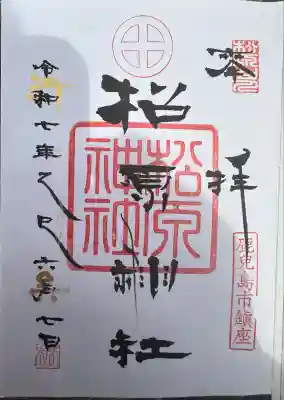 奉拝
鹿児島市鎮座
松原神社
松原
神社
令和七年乙巳六月七日